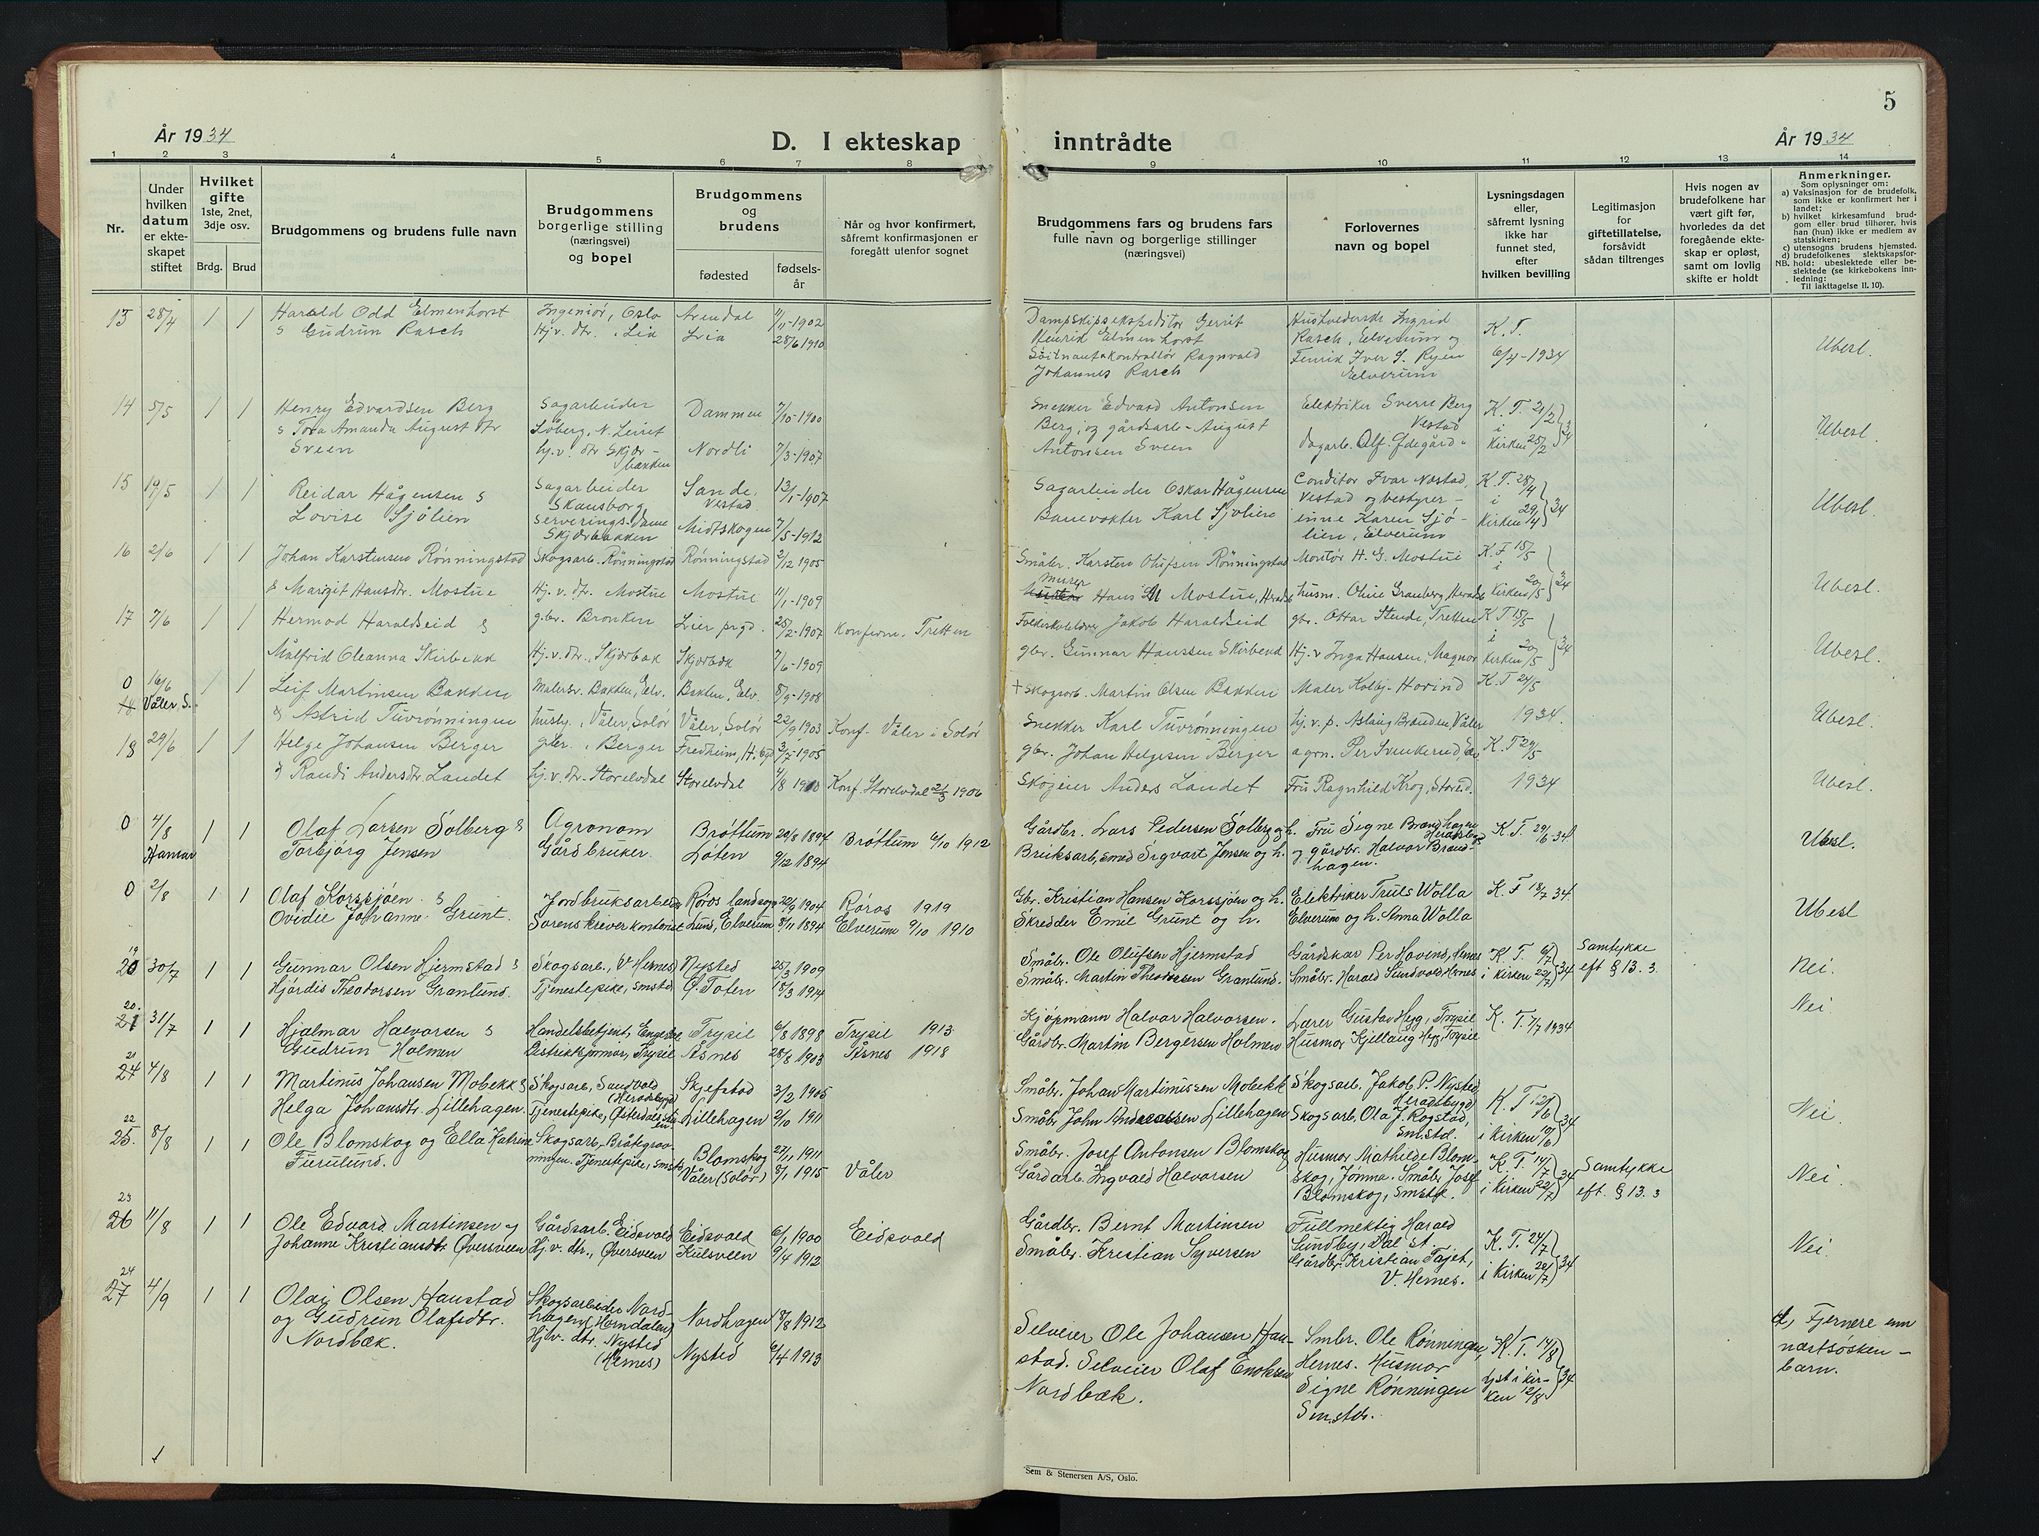 5
År 1934
D. I ekteskap inntrådte
År 1934
1 2 3 4 5 6 7 8 9 10 11 12 13 14
Nr.
Under hvilken datum er ekteskapet stiftet
Hvilket gifte
1ste, 2net, 3dje osv.
Brdg. Brud
Brudgommens og brudens fulle navn
Brudgommens borgerlige stilling (næringsvei) og bopel
Brudgommens og brudens
fødested
fødselsår
Når og hvor konfirmert, såfremt konfirmasjonen er foregått utenfor sognet
Brudgommens fars og brudens fars fulle navn og borgerlige stillinger (næringsvei)
Forlovernes navn og bopel
Lysningsdagen eller, såfremt lysning ikke har funnet sted, efter hvilken bevilling
Legitimasjon for giftetillatelse, forsåvidt sådan tiltrenges
Hvis nogen av brudefolkene har vært gift før, hvorledes da det foregående ekteskap er opløst, samt om lovlig skifte er holdt
Anmerkninger.
Som oplysninger om:
a) Vaksinasjon for de brudefolk, som ikke er konfirmert her i landet;
b) hvilket kirkesamfund brudgom eller brud tilhører, hvis han (hun) ikke er medlem av statskirken;
c) utensogns brudens hjemsted.
d) brudefolkenes slektskapsforhold: ubeslektede eller beslektede (se kirkebokens innledning:
NB.
Til iakttagelse II. 10).
13 28/4 1 1 Harald Odd Elmenhorst & Gudrun Rasch
Ingeniør, Oslo Hj.v. dtr., Lia
Arendal 11/11-1902
Lia 28/6 1910
Dampskipsekspeditør Gerrit Henrik Elmenhorst
Johannes Rasch
Rasch, Elverum og Fenrik Iver S. Ryen Elverum
K. T. 6/4-1934
Ubesl.
14 5/5 1 1 Henry Edvardsen Berg & Tora Amanda August dtr Sveen
Sagarbeider Løberg, N. Leiret hj.v. dtr Skjærbakken
Dammen 7/10-1900
Nordli 7/3-1907
Snekker Edvard Antonsen Berg, og gårdsarb. August Antonsen Sveen
Elektriker Sverre Berg Vestad
K. T. 21/2 i Kirken 25/2 34
Ubesl.
15 19/5 1 1 Reidar Hågensen & Lovise Sjølien
Sagarbeider Skansborg serverings-dame Skjærbakken
Sande, Vestad. 13/1-1907
Midtskogen 7/5-1912
Sagarbeider Oskar Hågensen Banevokter Karl Sjølien
Conditor Ivar Næstad, Vestad og bestyrerinne Karen Sjølien, Elverum
K. T. 28/4 i Kirken 29/4 34
Ubesl.
16 2/6 1 1 Johan Karstensen Rønningstad & Margit Hansdtr. Mostue
Skogsarb. Rønningstad Hj. v. dtr. Mostue
Rønningstad 2/12 1905
Mostue 11/1-1909
Småbr. Karsten Olufsen Rønningstad murer Hans M Mostue, Heradsb
Montør H. G. Mostue husm. Oline Granberg Heradsb
K. T. 15/5 i Kirken 20/5 34
Ubesl.
17 7/6 1 1 Hermod Haraldseid & Målfrid Oleanna Skirbekk
gbr. Bronken Hj. v. dtr., Skjærbæk
Lier prgd. 25/2-1907
Skjærbæk 7/6-1909
Konfirm. Tretten
Folkeskolelærer Jakob Haraldseid gbr. Gunnar Hanssen Skirbekk
gbr. Ottar Stende, Tretten Hj. v Inga Hansen, Magnor
K T 15/5 i Kirken 20/5 34
Ubesl.
0 18 16/6 Våler, S. 1 1 Leif Martinsen Bakken & Astrid Tuvrønningen
Malersv. Bakken, Elv. husby., Våler, Solør
Bakken, Elv. 8/9-1908
Våler, Solør 22/9 1903
Konf. Våler i Solør
+ Skogsarb. Martin Olsen Bakken Snekker Karl Tuvrønningen
Maler Kolbj. Hovind hj. v. p. Aslaug Brænden, Våler
K. T 24/5 1934.
Ubesl.
18 29/6 1 1 Helge Johansen Berger & Randi Andersdtr. Landet
gbr., Berger hj. v. dtr. Storelvdal
Fredheim, H. 3/7-1905
Storelvdal 4/8 1910
Konf. Storelvdal 21/3 1906
gbr. Johan Helgesen Berger Skogeier Anders Landet
agron. Per Svenkerud, Fru Ragnhild Krog, Storelvd.
K. T 29/5 1934
Ubesl.
0 4/8 Hamar 1 1 Olaf Larsen Solberg & Torbjørg Jensen
Agronom Gårdbruker.
Brøttum 20/8 1897
Løten 9/12 1894
Brøttum 4/10 1912
Gårdbr. Lars Pedersen Solberg og h. Bruksarb, smed Sigvart Jensen og h.
Fru Signe Brændhagen Heradsbygd og gårdbr. Halvor Brændhagen.
K. T. 29/6 34.
Ubesl.
0 2/8 1 1 Olaf Korssjøen & Ovidie Johanne Grunt.
Jordbruksarbeider Sorenskriverkontorist
Røros landsogn 22/2 1904
Lund, Elverum 8/11 1894
Røros 1919
Elverum 9/10 1910
Gbr. Kristian Hansen Korssjøen og h. Skredder Emil Grunt og h.
Elektriker Truls Wolla Elverum og h. Anna Wolla
K. T 18/7 34.
Ubesl
19 20 30/7 1 1 Gunnar Olsen Hjermstad & Hjørdis Theodorsen Granlund.
Skogsarb., V Hernes Tjenestepike, Smstd
Nysted 25/3 1909
Ø. Toten 18/3 1914
Småbr. Ole Olufsen Hjermstad Småbr. Martin Theodorsen Granlund.
Gårdskar Per Hovind, Hernes Småbr. Harald Sundvold Hernes
K. T. 6/7 i Kirken 22/7 34
Samtykke eft § 13. 3
Nei.
20. 21 31/7 1 1 Hjalmar Halvorsen & Gudrun Holmen
Handelsbetjent, Distriktsjormor, Trysil
Trysil 6/8 1898
Åsnes 28/8 1903
Trysil 1913
Åsnes 1918
Kjøpmann Halvor Halvorsen. Gårdbr. Martin Bergersen Holmen
Lærer Gustav Hyg, Trysil Husmor Kjellaug Hyg, Trysil
K. T. 7/7 1934
Nei.
21 24 4/8 1 1 Martinus Johansen Mobekk & Helga Johansdtr. Lillehagen.
Skogsarb, Sandvold (Heradsbygd) Tjenestepike,
Skjefstad 3/2 1905
Lillehagen 2/10 1911
Småbr. Johan Martinussen Mobekk Småbr. John Andreassen Lillehagen
Skogsarb. Jakob P. Nysted, Heradsbygd Skogsarb. Ola J. Rogstad, Smstd.
K. T i Kirken 10/6 34
Nei.
22 25. 8/8 1 1 Ole Blomskog og Ella Katrine Furulund.
Skogsarb. Tjenestepike, smstd
Blomskog 27/1 1911
Våler (Solør) 8/1 1915
Våler
Småbr. Josef Antonsen Blomskog Gårdarb. Ingvald Halvorsen
Husmor Mathilde Blomskog, Jømna. Småbr. Josef Blomskog, Smstd.
K. T. 14/7 i Kirken 22/7 34
Samtykke eft. § 13. 3
Nei.
23 26 11/8 1 1 Ole Edvard Martinsen og Johanne Kristiansdtr Øversveen
Gårdsarb. Eidsvold Hj. v. dtr., Øversveen
Eidsvold 6/1 1900
Kulsveen 9/4 1912
Eidsvold
Gårdbr. Bernt Martinsen Småbr. Kristian Syversen
Fullmektig Harald Sundby, Dal st. Gårdbr. Kristian Tajet, V. Hernes.
K. T. 24/7 i Kirken 22/7 34
Nei.
24 27 4/9 1 1 Olav Olsen Haustad og Gudrun Olafsdtr. Nordbæk.
Skogsarbeider Nordhagen (Horndalen) Hj.v. dtr. Nysted (Hernes)
Nordhagen 17/8 1912
Nysted 6/4 1913
Selveier Ole Johansen Haustad. Selveier Olaf Enoksen Nordbæk.
Smbr. Ole Rønningen, Hernes. Husmor Signe Rønningen Smstd.
K. T. 14/8 lyst i kirken 12/8 34
d, Fjernere enn næstsøskenbarn.
Sem & Stenersen A/S, Oslo.